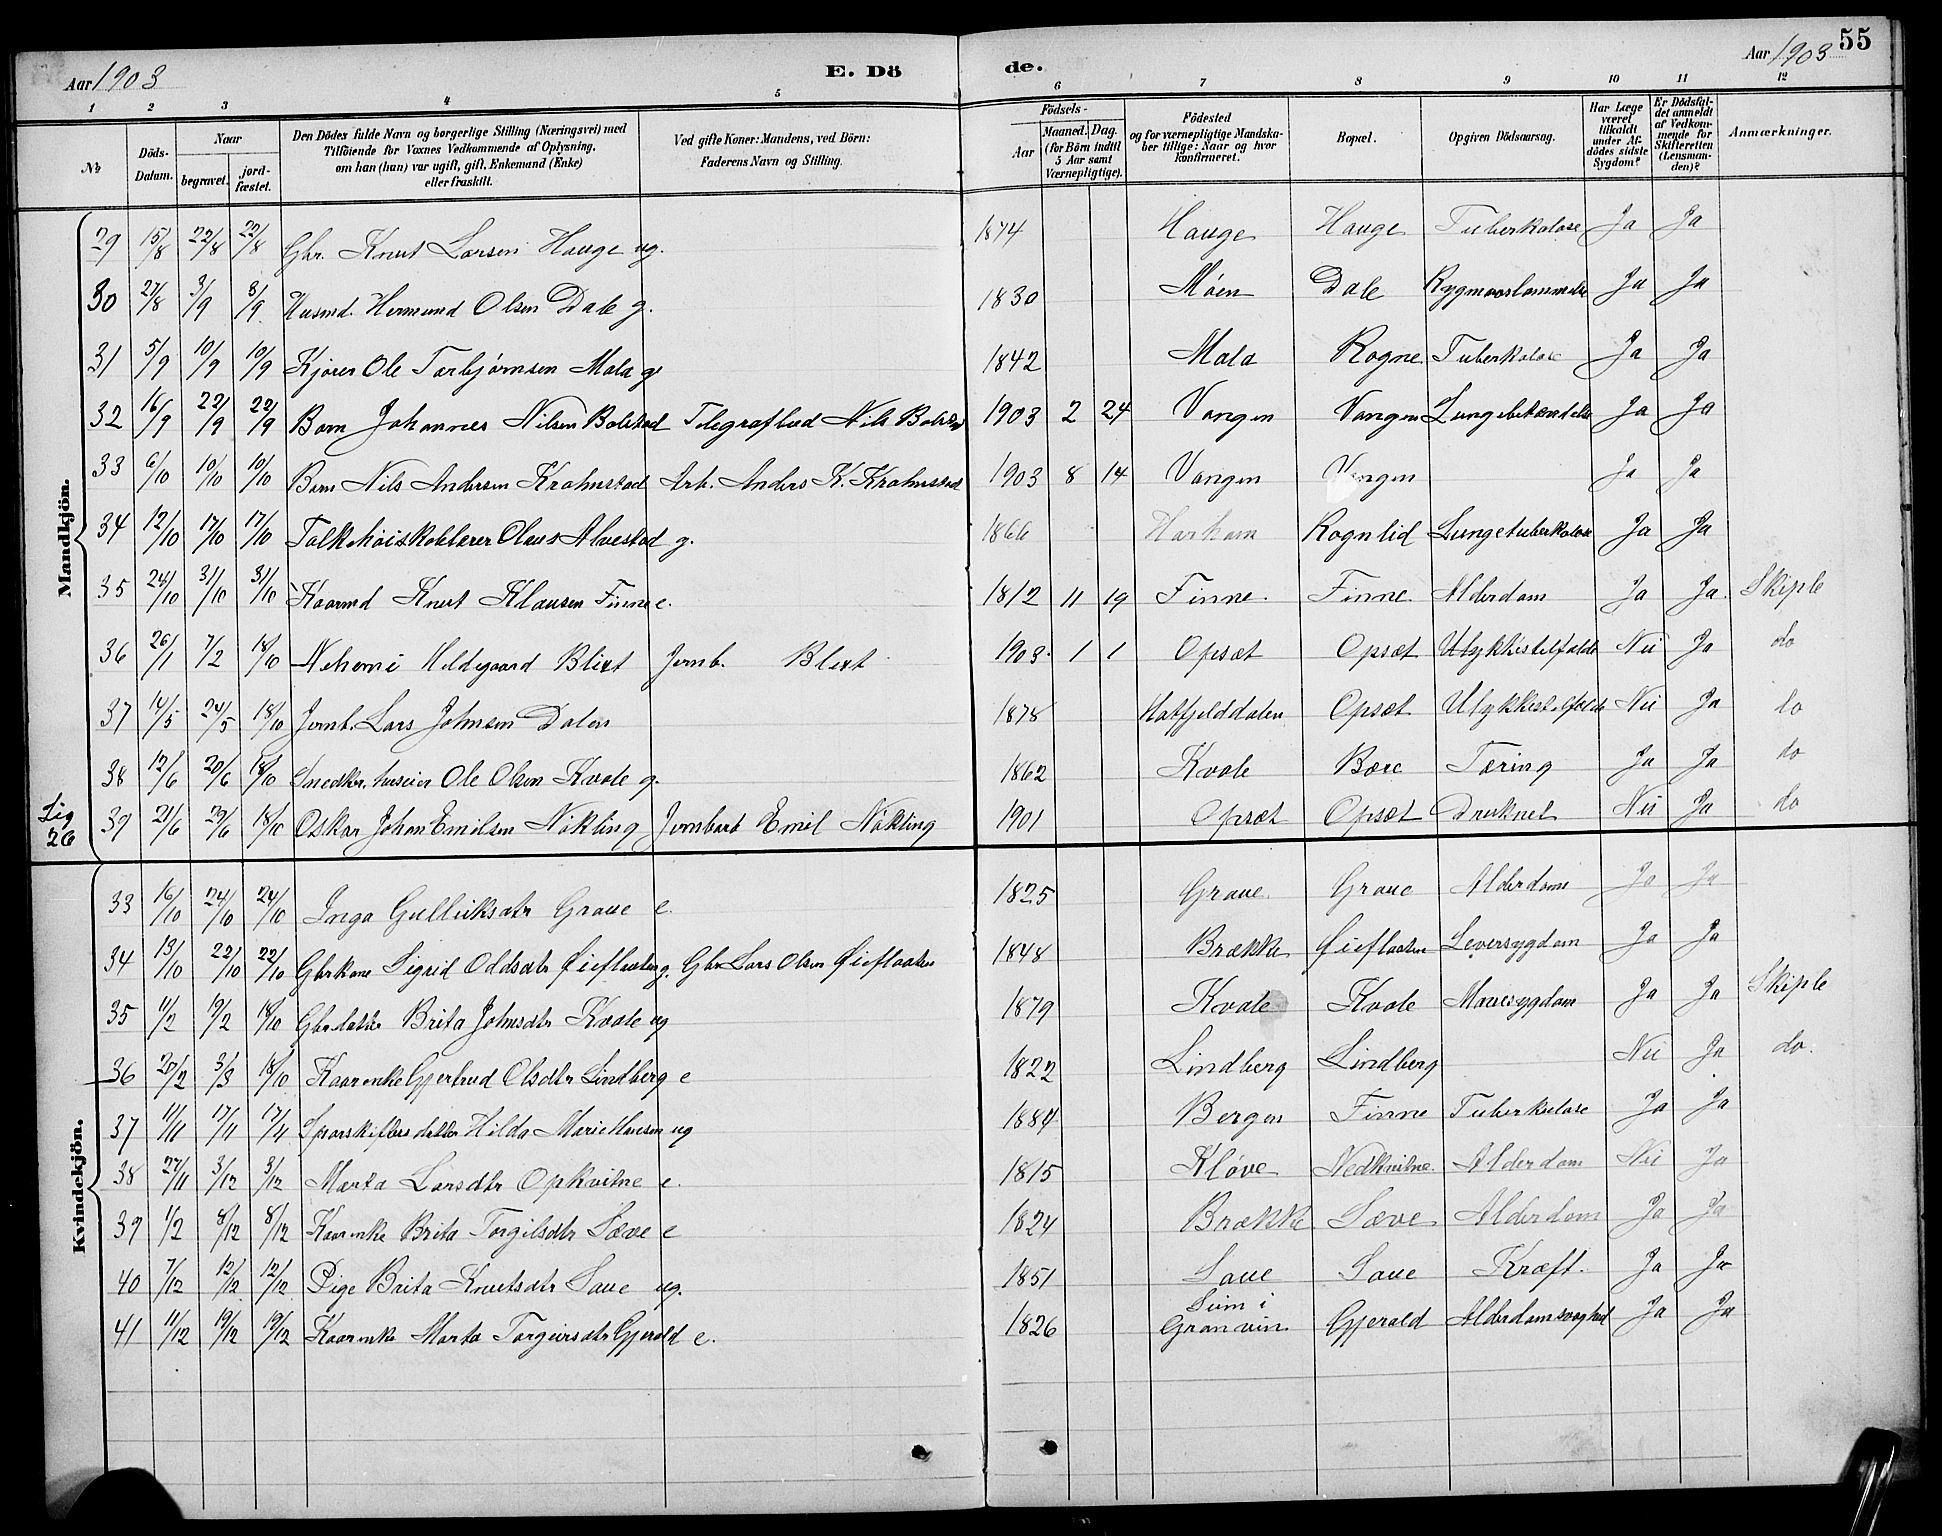 Aar 1903 E. Dö de. Aar 1903 55
1 2 3 4 5 6 7 8 9 10 11 12
No Döds-Datum. Naar begravet. jord-fæstet. Den Dödes fulde Navn og borgerlige Stilling (Næringsvei) med Tilföiende for Voxnes Vedkommende af Oplysning, om han (hun) var ugift, gift, Enkemand (Enke) eller fraskilt. Ved gifte Koner: Mandens, ved Börn: Faderens Navn og Stilling. Födsels- Aar Maaned. Dag. (for Börn indtil 5 Aar samt Værnepligtige). Födested og for værnepligtige Mandskaber tillige: Naar og hvor konfirmeret. Bopæl. Opgiven Dödsaarsag. Har Læge været tilkaldt under Afdödes sidste Sygdom? Er Dödsfaldet anmeldt af Vedkommende for Skifteretten (Lensmanden)? Anmærkninger.
Mandkjön.
29 15/8 22/8 22/8 Gbr. Knut Larsen Hauge ug. 1874 Hauge Hauge Tuberkolose Ja Ja
30 27/8 3/9 3/9 Husmd. Hermund Olsen Dale g. 1830 Móen Dale Rygmarvslammelse Ja Ja
31 5/9 10/9 10/9 Kjører Ole Torbjørnsen Mala g 1842 Mala Rogne Tuberkolose Ja Ja
32 16/9 22/9 22/9 Barn Johannes Nilsen Bolstad Telegrafbud Nils Bolstad 1903 2 24 Vangen Vangen Lungebetændelse Ja Ja
33 6/10 10/10 10/10 Barn Nils Andersen Krohnstad Arb. Anders K. Krohnstad 1903 8 14 Vangen Vangen Ja Ja
34 12/10 17/10 17/10 Folkehøiskolelærer Olaus Alvestad g. 1866 Harham Rognlid Lungetuberkolose Ja Ja
35 24/10 31/10 31/10 Kaarmd Knut Klausen Finne e. 1812 11 19 Finne Finne Alderdom Ja Ja. Skiple
36 26/1 7/2 18/10 Nehemi Hildegaard Blixt Jernb. Blixt 1903 1 1 Opsæt Opsæt Ulykkestilfælde Nei Ja do
37 14/5 24/5 18/10 Jernb. Lars Johnsen Dalen 1878 Hatfjelddalen Opsæt Ulykkestilfælde Nei Ja do
38 12/6 20/6 18/10 Snedker, huseier Ole Olsen Kvale g. 1862 Kvale Bære Tæring Ja Ja do
Lig 26
39 21/6 29/6 18/10 Oskar Johan Emilsen Nökling Jernbarb Emil Nökling 1901 Opsæt Opsæt Druknet Nei Ja do
Kvindekjön.
33 16/10 24/10 24/10 Inga Gulleiksdtr Graue e. 1825 Graue Graue Alderdom Ja Ja
34 13/10 22/10 22/10 Gbrkone Sigrid Oddsdtr Øieflaaten g. Gbr Lars Olsen Øieflaaten 1848 Brække Øieflaaten Leversygdom Ja Ja
35 11/2 19/2 18/10 Gbrdatter Brita Johnsdtr Kvale ug 1879 Kvale Kvale Mavesygdom Ja Ja Skiple
36 20/2 3/3 18/10 Kaarenke Gjertrud Olsdtr Lindberg e 1822 Lindberg Lindberg Nei Ja do.
37 11/11 17/11 17/11 Sporskifters datter Hilda Marie Hansen ug 1884 Bergen Finne Tuberkulose Ja Ja
38 27/11 3/12 3/12 Marta Larsdtr Opkvitne e. 1815 Kløve Nedkvitne. Alderdom Nei Ja
39 1/2 8/12 8/12 Kaarenke Brita Torgilsdtr Sæve e 1824 Brække Sæve Alderdom Ja Ja
40 7/12 12/12 12/12 Pige Brita Knutsdtr Saue ug. 1851 Saue Saue Kræft. Ja Ja
41 11/12 19/12 19/12 Kaarenke Marta Torgeirsdtr Gjerald e. 1826 Seim i Granvin Gjerald Alderdomsvaghed Ja Ja